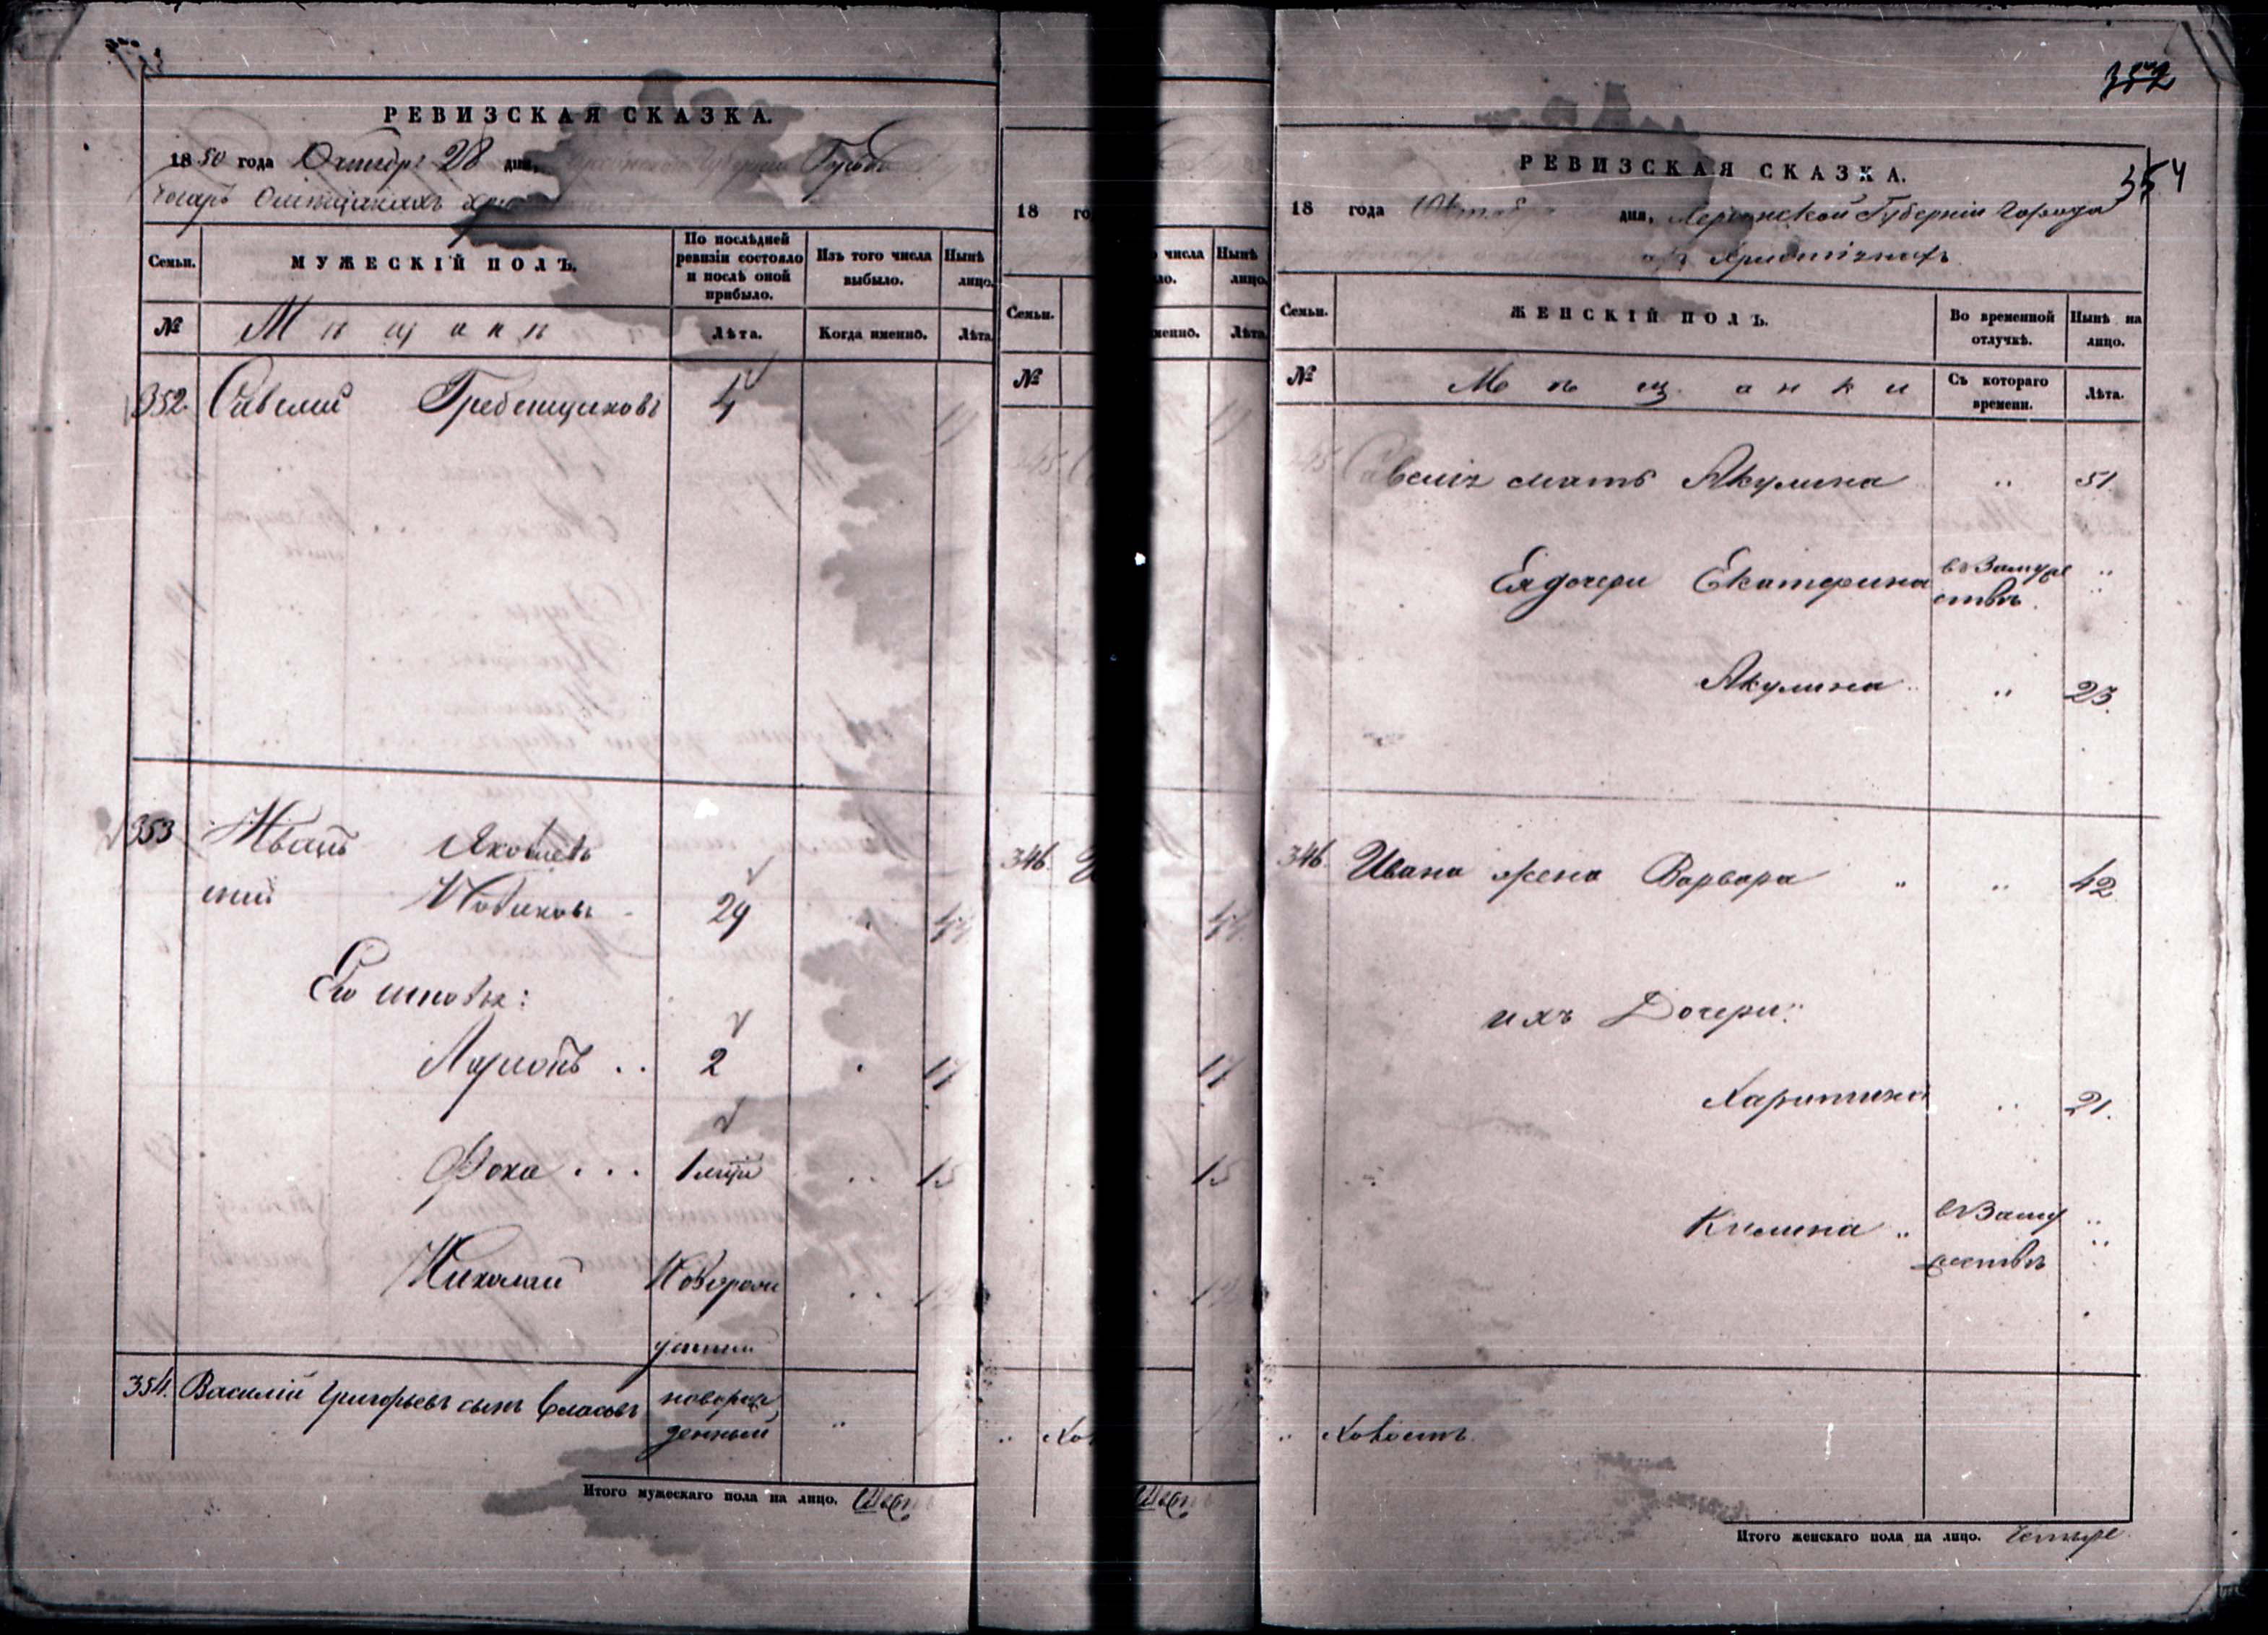 РЕВИЗСКАЯ СКАЗКА.
1850 года Октября 28 дня, Губ
МУЖЕСКІЙ ПОЛЪ.
Семьи.
По послѣдней ревизіи состояло и послѣ оной прибыло.
Изъ того числа выбыло.
Нынѣ лицо.
№
Мѣщане
Лѣта.
Когда именно.
Лѣта
352. Савелий Гребенщиковъ 4
353 Иванъ Яковлевъ
Новиковъ 29
Его сыновья:
Ларионъ .. 2 17
Фока ... 1 15
Николай Новорож
354. Василій Григорьевъ сынъ Власовъ новорож
денный
Итого мужескаго пола на лицо. Шесть
18 го
числа
Нынѣ лицо.
Семьи.
№
менно.
Лѣта
346.
17
15
Хол
352
354
РЕВИЗСКАЯ СКАЗКА.
18 года Октября дня, Херсонской Губерніи города
Семьи.
ЖЕНСКІЙ ПОЛЪ.
Во временной отлучкѣ.
Нынѣ на лицо.
№
Мѣщанки
Съ котораго времени.
Лѣта.
мать Акулина " 51
Ея дочери Екатерина въ Замуже "
ствѣ.
Акулина " 23.
346. Ивана жена Варвара " " 42
ихъ Дочери:
Харитина .. 21.
Килина " въ Заму "
жествѣ
" Холостъ.
Итого женскаго пола на лицо. Четыре.